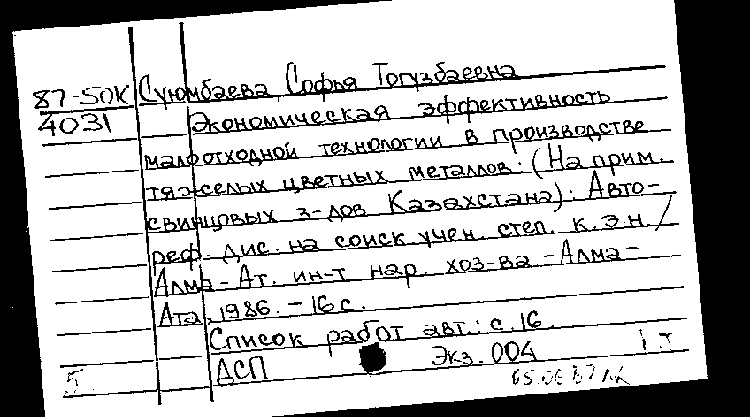 87-50К Суюмбаева Софья Тогузбаевна
4031 Экономическая эффективность
малоотходной технологии в производстве
тяжелых цветных металлов: (На прим.
свинцовых з-дов Казахстана): Авто-
реф. дис. на соиск. учен. степ. к.э.н. /
Алма-Ат. ин-т нар. хоз-ва - Алма-
Ата, 1986. - 16 с.
Список работ авт.: с. 16.
ДСП Экз. 004 1 т
5.